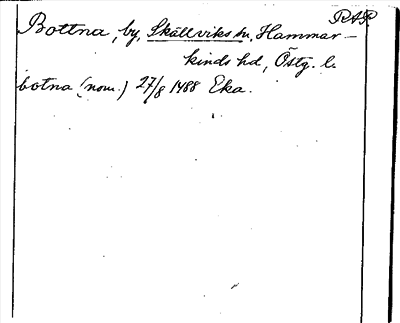 RAP
Bottna, by, Skällviks sn. Hammar-
kinds hd, Östg. l.
botna (nom.) 27/8 1488 Eka.